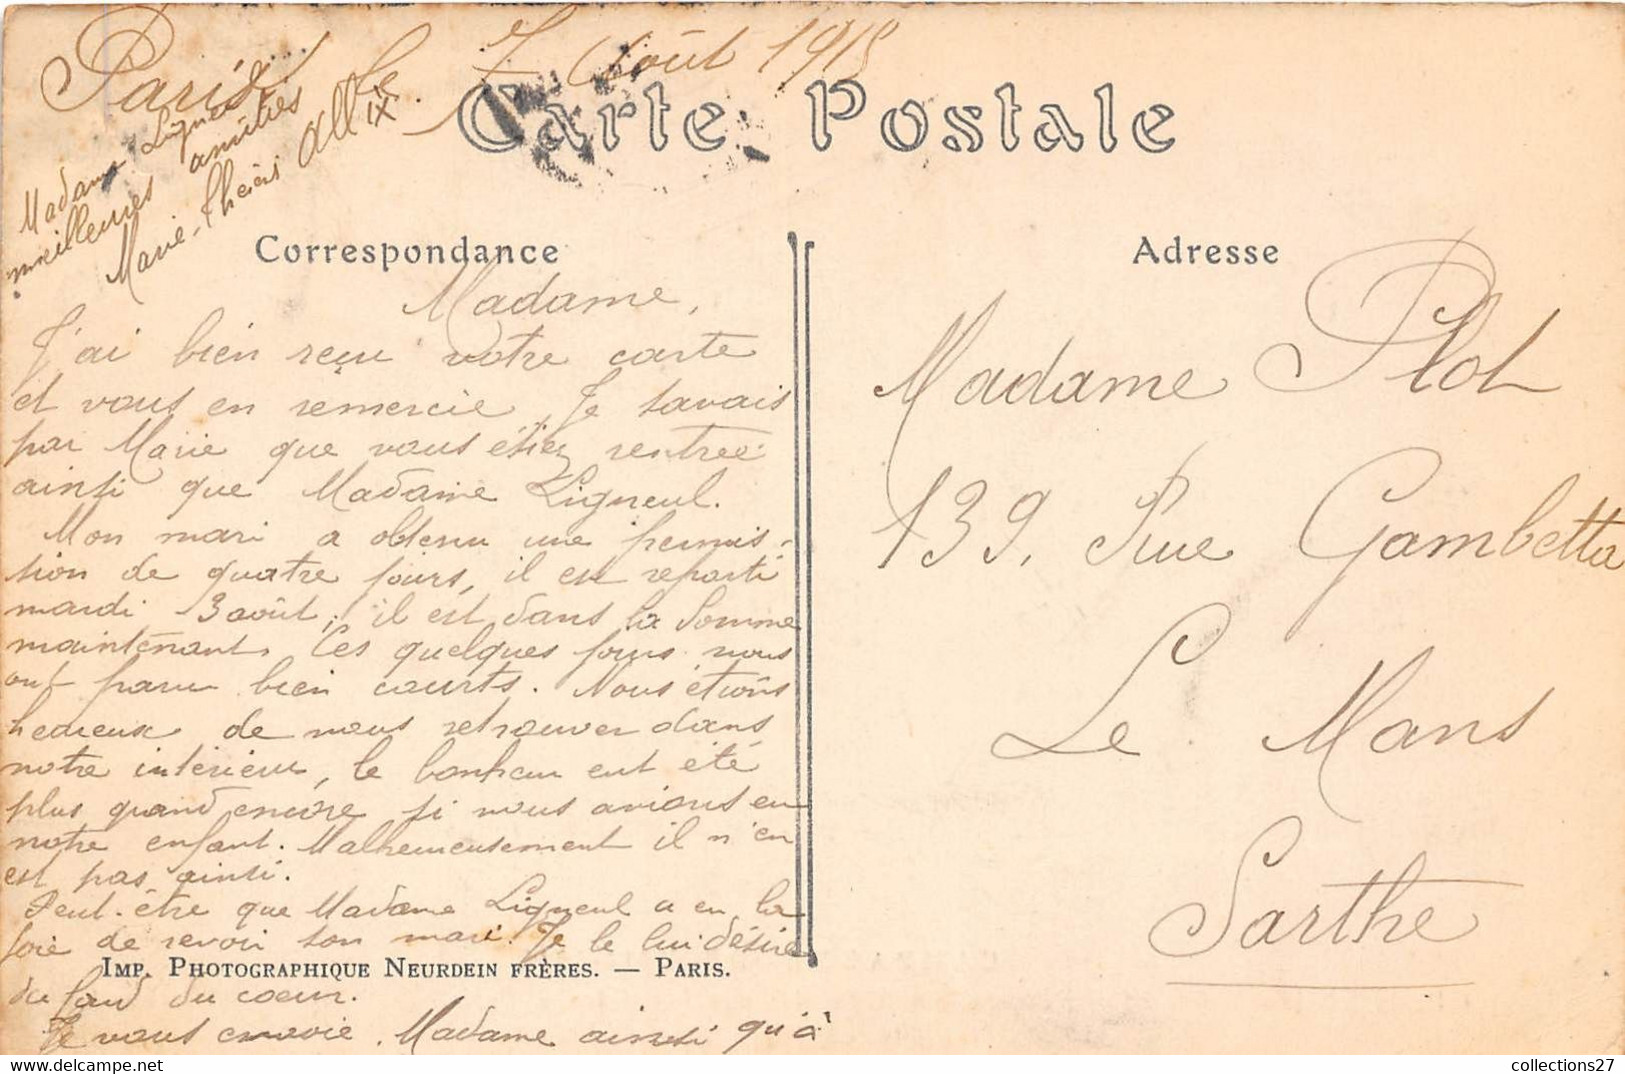 Paris le 7 Août 1915
Carte Postale
Correspondance
Madame,
J'ai bien reçu votre carte
et vous en remercie, Je savais
par Marie que vous étiez rentrée
ainsi que Madame Ligneul.
Mon mari a obtenu une permis-
sion de quatre jours, il est reparti
mardi 3 août, il est dans la Somme
maintenant. Ces quelques jours nous
ont paru bien courts. Nous étions
heureux de nous retrouver dans
notre intérieur, le bonheur eut été
plus grand encore si nous avions eu
notre enfant. Malheureusement il n'en
est pas ainsi.
Peut-être que Madame Ligneul a eu la
joie de revoir son mari. Je le lui désire
du fond du coeur.
Je vous envoie, Madame ainsi qu'à
Madame Ligneul
meilleures amitiés
Marie-Thérès Allix
Imp. Photographique Neurdein frères. — Paris.
Adresse
Madame Plot
139, Rue Gambetta
Le Mans
Sarthe
collections27